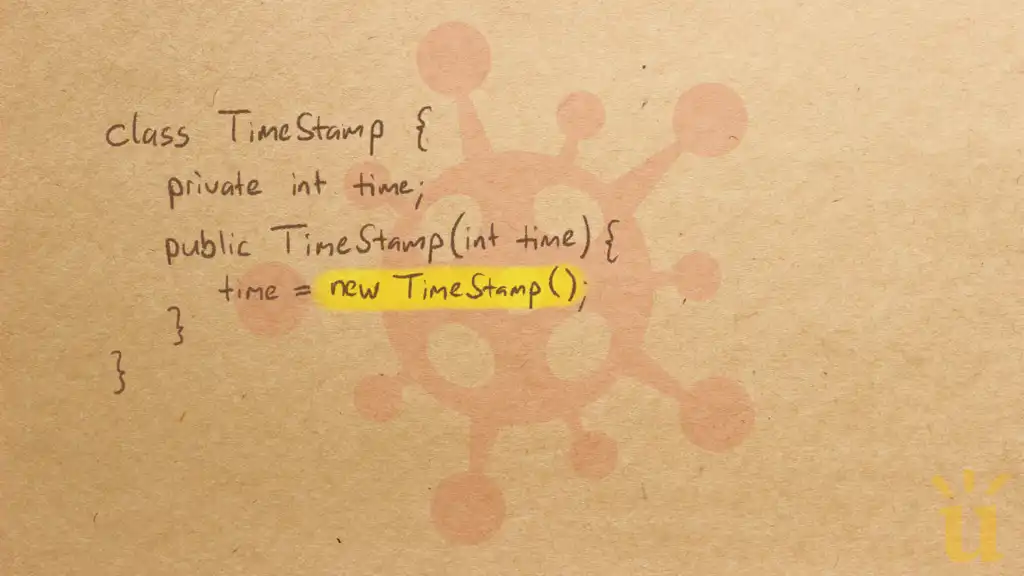 class TimeStamp {
private int time;
public TimeStamp(int time) {
time = new TimeStamp();
}
}
ü